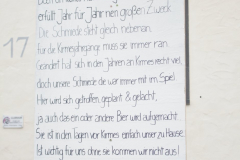 erfüllt Jahr für Jahr nen großen Zweck
Die Schmiede steht gleich nebenan.
für die Kirmesjahrgänge muss sie immer ran.
Geändert hat sich in den Jahren an Kirmes recht viel,
doch unsere Schmiede die war immer mit im Spiel
Hier wird sich getroffen, geplant & gelacht,
ja auch das ein oder andere Bier wird aufgemacht.
Sie ist in den Tagen vor Kirmes einfach unser zu Hause,
Ist wichtig für uns ohne sie kommen wir nicht aus!
17